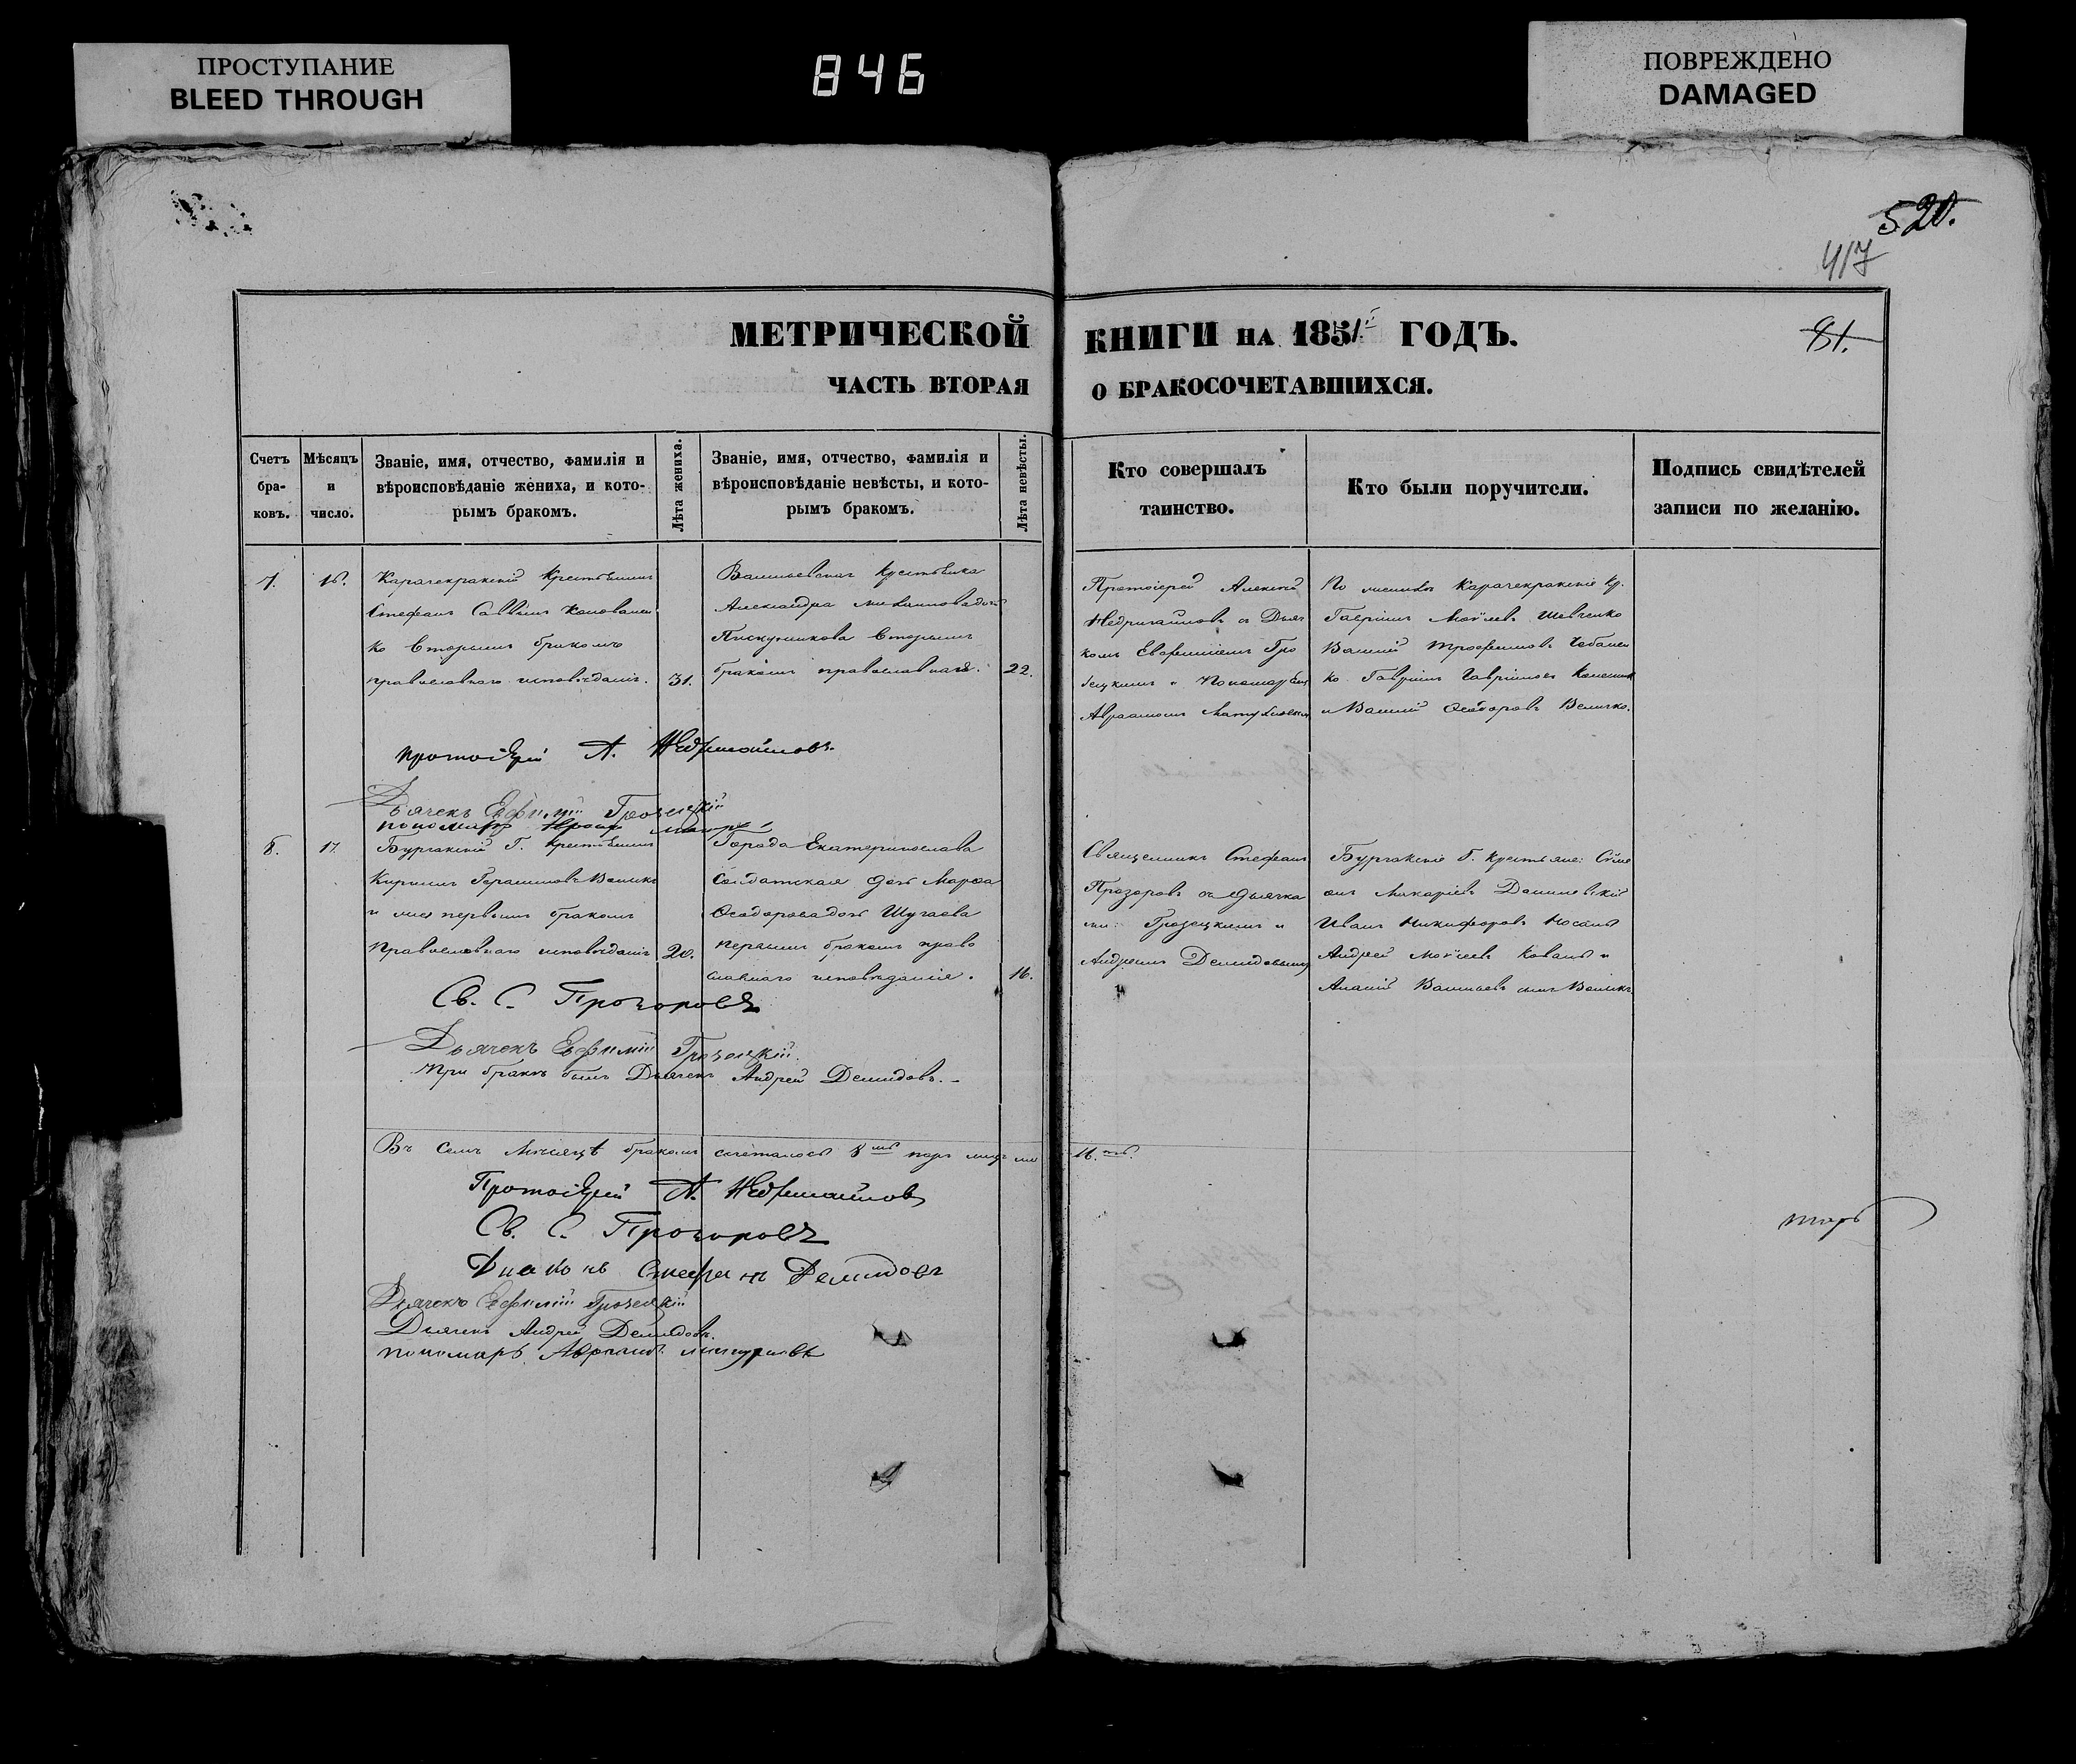 ПРОСТУПАНИЕ
BLEED THROUGH
846
ПОВРЕЖДЕНО
DAMAGED
520.
417
МЕТРИЧЕСКОЙ КНИГИ НА 1851 ГОДЪ.
81.
ЧАСТЬ ВТОРАЯ О БРАКОСОЧЕТАВШИХСЯ.
Счетъ
бра-
ковъ.
Мѣсяцъ
и
число.
Званіе, имя, отчество, фамилія и
вѣроисповѣданіе жениха, и кото-
рымъ бракомъ.
Лѣта жениха.
Званіе, имя, отчество, фамилія и
вѣроисповѣданіе невѣсты, и кото-
рымъ бракомъ.
Лѣта невѣсты.
Кто совершалъ
таинство.
Кто были поручители.
Подпись свидѣтелей
записи по желанію.
7.
16.
Карачекракскій Крестьянинъ
Стефанъ Саввинъ Коновален
ко Вторымъ бракомъ
православнаго исповѣданія.
31.
Васильевская крестьянка
Александра
Пискунникова Вторымъ
бракомъ православнаго.
22.
Протоіерей Алексей
Недригайловъ съ Дьяч
комъ Евфиміемъ Гро
зецкимъ и Пономаремъ
Авраамомъ
По женихѣ Карачекракскіе кр.
Гавріилъ Моѵсеевъ Шевченко
Василій Трофимовъ Чабанен
ко Гавріилъ Гавріиловъ
и Василій Ѳеодоровъ Величко.
Протоіерей А. Недригайловъ.
Дьячекъ Евфимій Грозецкій
пономарь
8.
17
Бурчакскій Г. Крестьянинъ
Кириллъ Герасимовъ
первымъ бракомъ
Православнаго исповѣданія
20.
Города Екатеринослава
Солдатская дочь Марѳа
Ѳеодорова дочь Шугаева
первымъ бракомъ право
славнаго исповѣданія.
16.
Священникъ Стефанъ
Прозоровъ съ Дьячка
ми: Грозецкимъ и
Андреемъ Демидовымъ
Бурчакскіе Г. крестьяне: Сѵме
онъ Макаріевъ Данилевскій
Иванъ Никифоровъ Носань
Андрей Моѵсеевъ Коваль и
Ананій Васильевъ сынъ
Св. С. Прозоровъ
Дьячекъ Евфимій Грозецкій.
При бракѣ былъ Дьячекъ Андрей Демидовъ.
Въ семъ Мѣсяцѣ бракомъ сочеталось 8мь паръ лицъ 16.ть.
Протоіерей А. Недригайловъ
Св. С. Прозоровъ
Диаконъ Стефанъ Демидовъ
Дьячекъ Евфимій Грозецкій
Дьячекъ Андрей Демидовъ.
пономарь Авраамъ